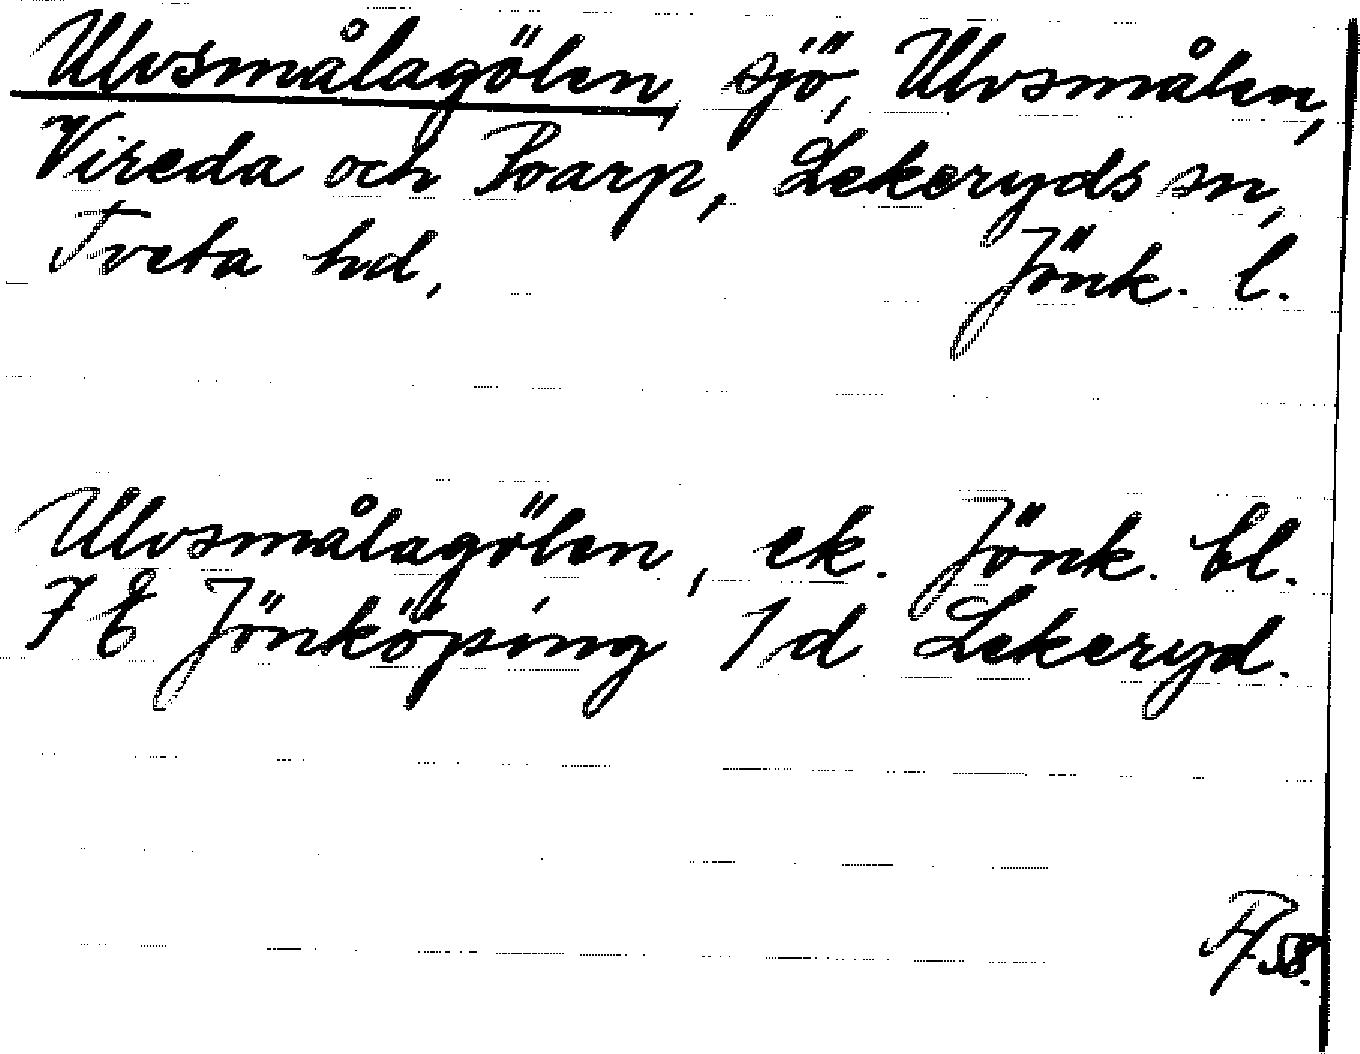 Ulvsmålagölen, sjö, Ulvsmålen,
Vireda och Poarp, Lekeryds sn,
Tveta hd, Jönk. l.
Ulvsmålagölen, ek. Jönk. bl.
7E Jönköping 1d Lekeryd.
58.